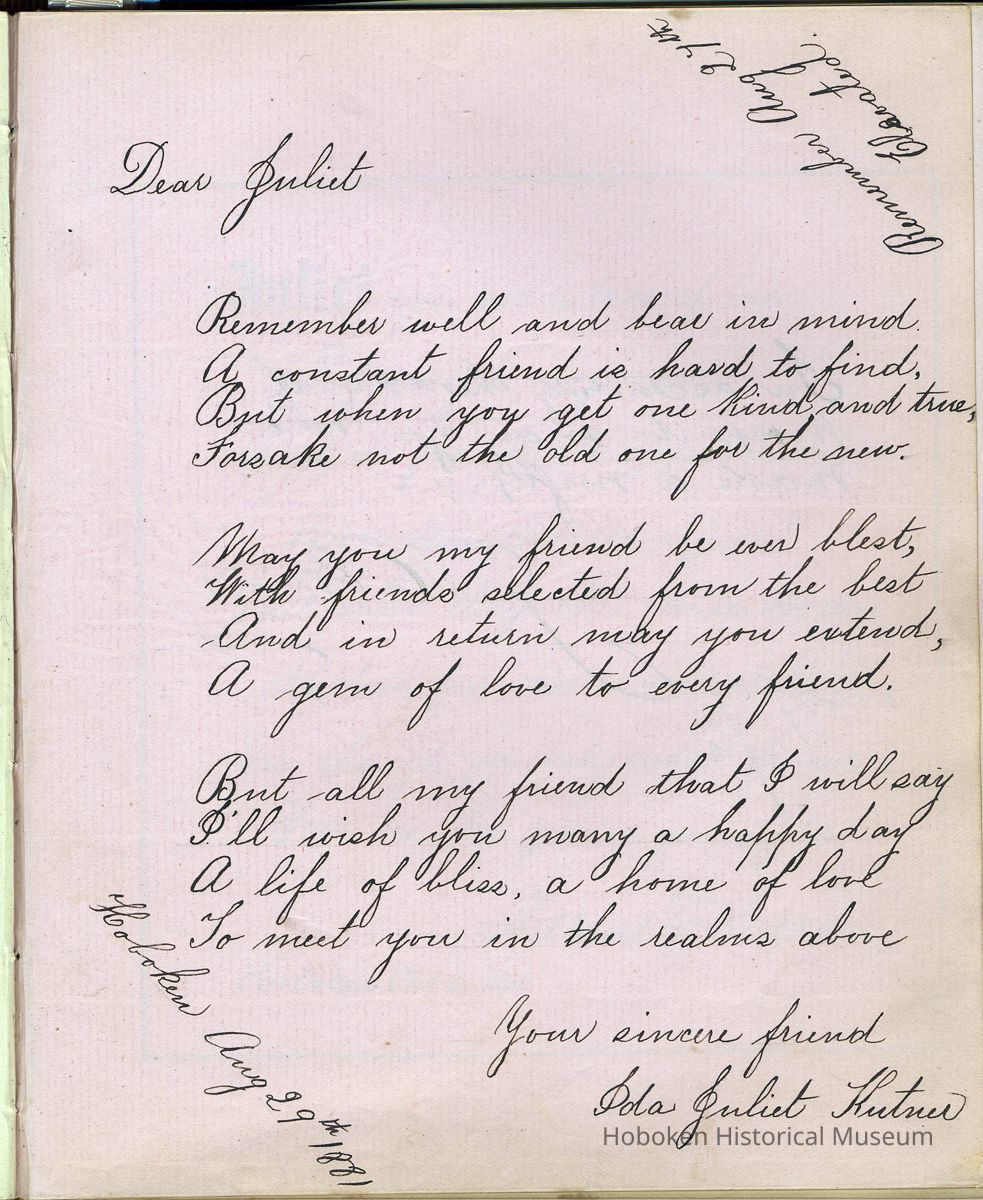 Remember Aug 27th
Elevated.
Dear Juliet
Remember well and bear in mind
A constant friend is hard to find,
But when you get one kind and true,
Forsake not the old one for the new.
May you my friend be ever blest,
With friends selected from the best
And in return may you extend,
A gem of love to every friend.
But all my friend that I will say
I'll wish you many a happy day
A life of bliss, a home of love
To meet you in the realms above
Your sincere friend
Ida Juliet Kutner
Hoboken Aug 29th 1881
Hoboken Historical Museum